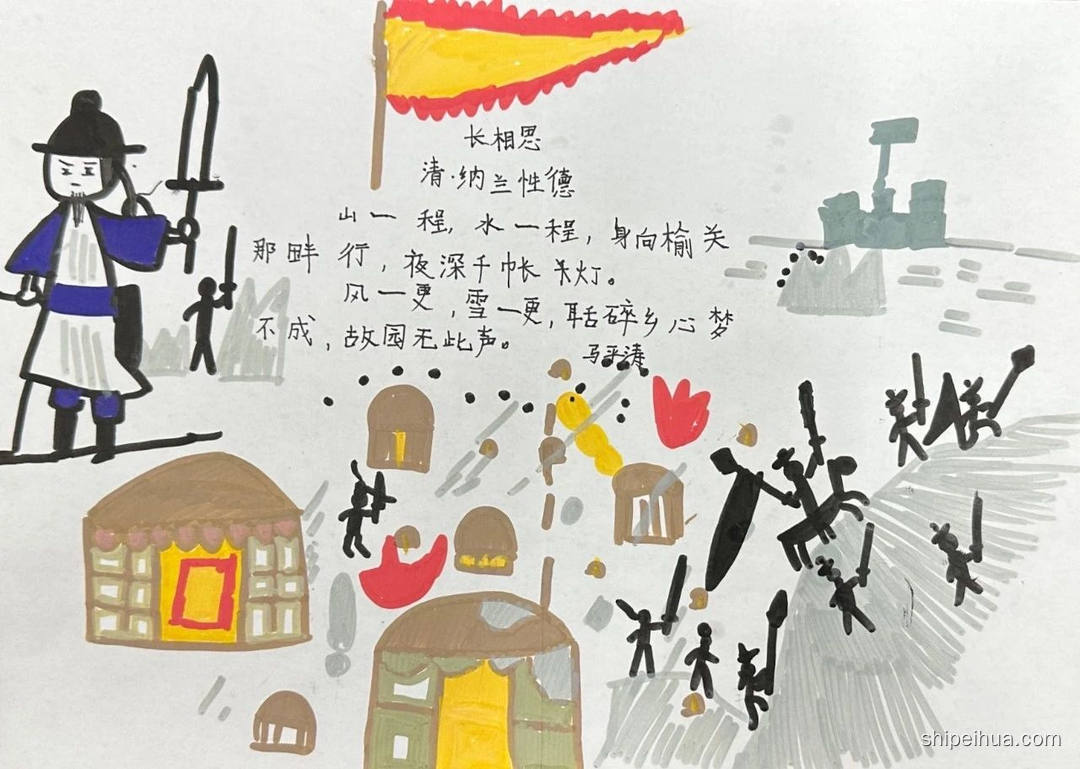 长相思
清·纳兰性德
山一 程，水一程，身向榆关
那畔 行，夜深千帐关灯。
风一更，雪一更，聒碎乡心梦
不成，故园无此声。
shipeihua.com